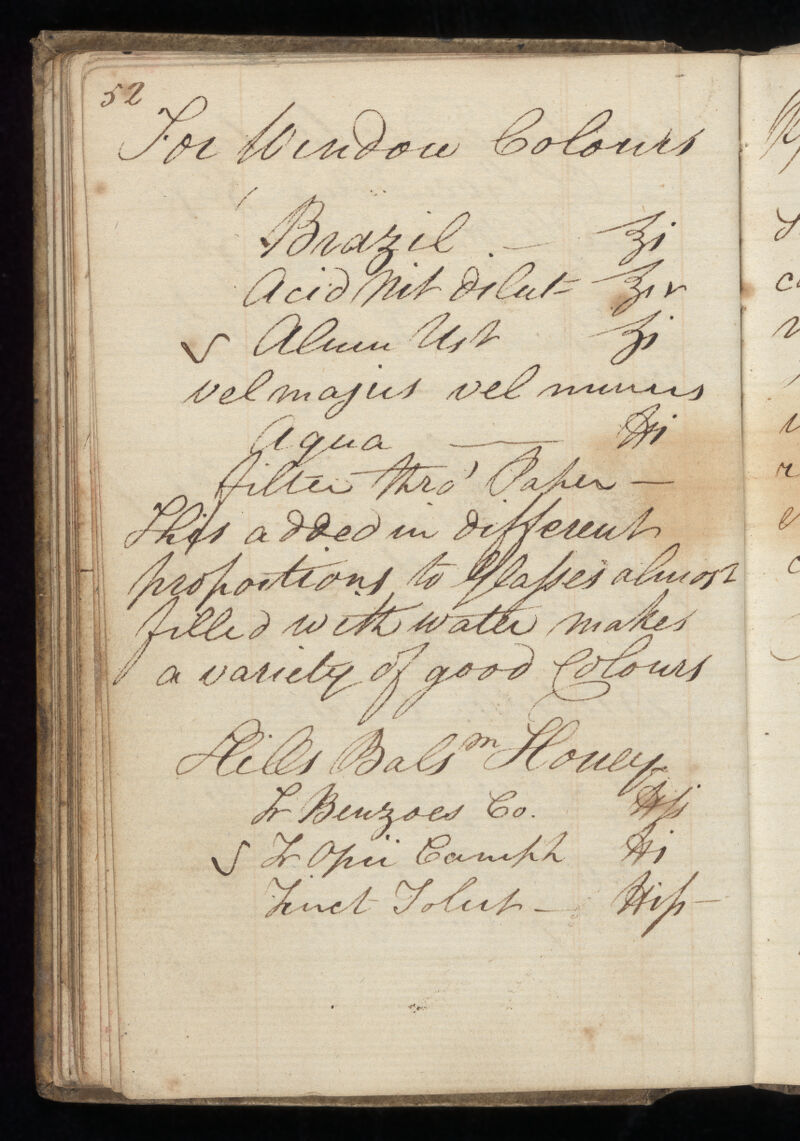 52
For Window Colours
Brazil — ℥i
Acid Nit dilut= ℥iv
Alum Ust ℥i
vel majus vel minus
Aqua — ℔i
filter thro' Paper —
This added in different
proportions to Glasses almost
filled with water makes
a variety of good Colours
Hills Bals^m Honey
Tr Benzoes Co. ℔ſs
Tr Opii Camph ℔i
Tinct Tolut — ℔iſs —